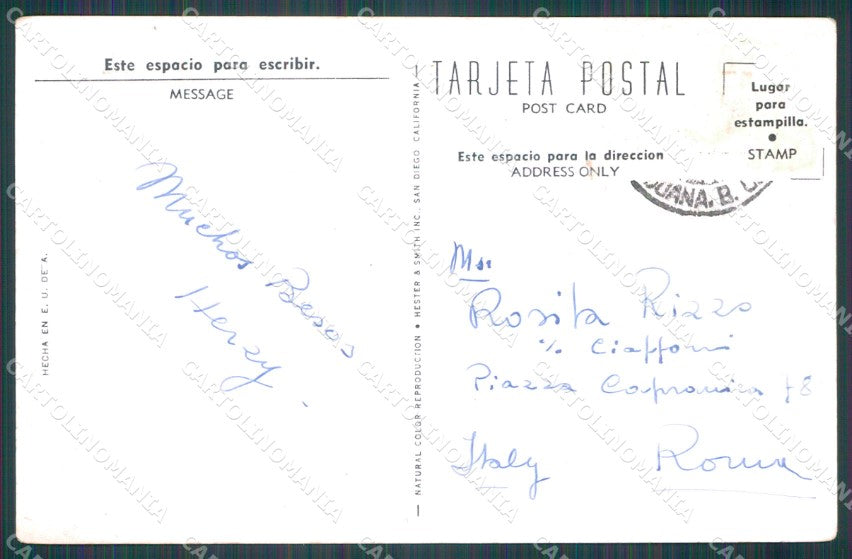 Este espacio para escribir.
MESSAGE
Muchos Besos
Herzy
HECHA EN E. U. DE A.
NATURAL COLOR REPRODUCTION • HESTER & SMITH INC. SAN DIEGO CALIFORNIA
TARJETA POSTAL
POST CARD
Lugar
para
estampilla.
STAMP
Este espacio para la direccion
ADDRESS ONLY
JUANA, B. C.
Rosita Rizzo
% Ciaffoni
Piazza Capranica 78
Italy Roma
CARTOLINOMANIA